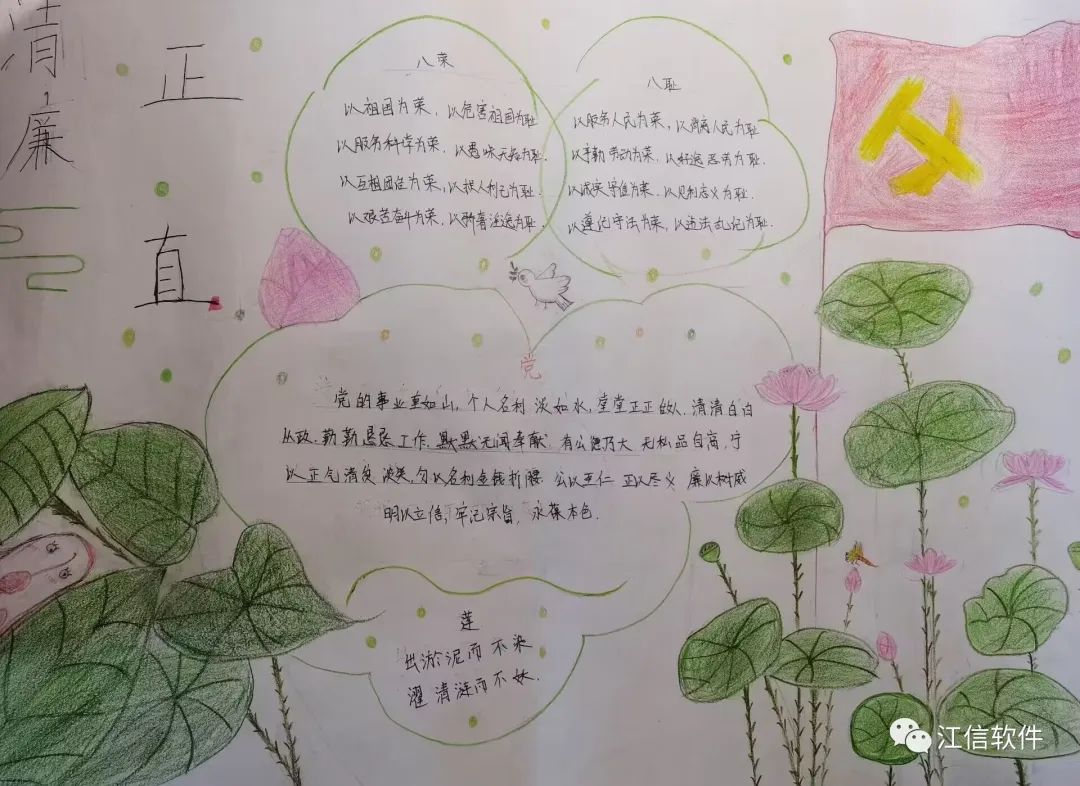 清廉
正直
八荣
以祖国为荣，以危害祖国为耻
以服务科学为荣，以愚昧无知为耻.
以互祖团住为荣，以损人利己为耻.
以艰苦奋斗为荣，以骄奢淫逸为耻.
八耻
以服务人民为荣，以背离人民为耻
以辛勤劳动为荣，以好逸恶劳为耻.
以诚实守信为荣，以见利忘义为耻.
以遵纪守法为荣，以违法乱纪为耻.
党
党的事业重如山，个人名利淡如水，堂堂正正做人，清清白白
从政.勤勤恳恳工作，默默无闻奉献 有公德乃大 无私品自高，宁
以正气清贫 淡笑，勿以名利金钱折腰 公以至仁 正以尽义 廉以树威
明以立信，牢记宗旨，永葆本色.
莲
出淤泥而不染
濯清涟而不妖.
江信软件